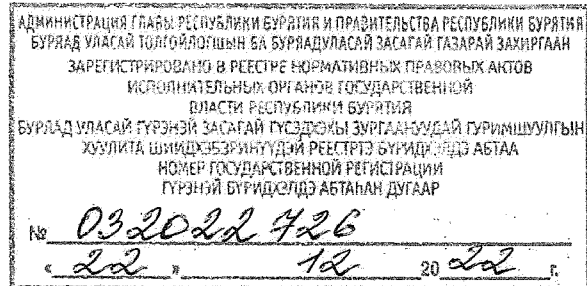 АДМИНИСТРАЦИЯ ГЛАВЫ РЕСПУБЛИКИ БУРЯТИЯ И ПРАВИТЕЛЬСТВА РЕСПУБЛИКИ БУРЯТИЯ
БУРЯАД УЛАСАЙ ТОЛГОЙЛОГШЫН БА БУРЯАД УЛАСАЙ ЗАСАГАЙ ГАЗАРАЙ ЗАХИРГААН
ЗАРЕГИСТРИРОВАНО В РЕЕСТРЕ НОРМАТИВНЫХ ПРАВОВЫХ АКТОВ
ИСПОЛНИТЕЛЬНЫХ ОРГАНОВ ГОСУДАРСТВЕННОЙ
ВЛАСТИ РЕСПУБЛИКИ БУРЯТИЯ
БУРЯАД УЛАСАЙ ГҮРЭНЭЙ ЗАСАГАЙ ЗУРГААНУУДАЙ ГУРИМШУУЛГЫН
ХУУЛИТА ШИИДХЭБЭРИНҮҮДЭЙ РЕЕСТРТЭ БҮРИДХЭЛДЭ АБТАА
НОМЕР ГОСУДАРСТВЕННОЙ РЕГИСТРАЦИИ
ГҮРЭНЭЙ БҮРИДХЭЛДЭ АБТАҺАН ДУГААР
№ 032022726
« 22 » 12 20 22 г.